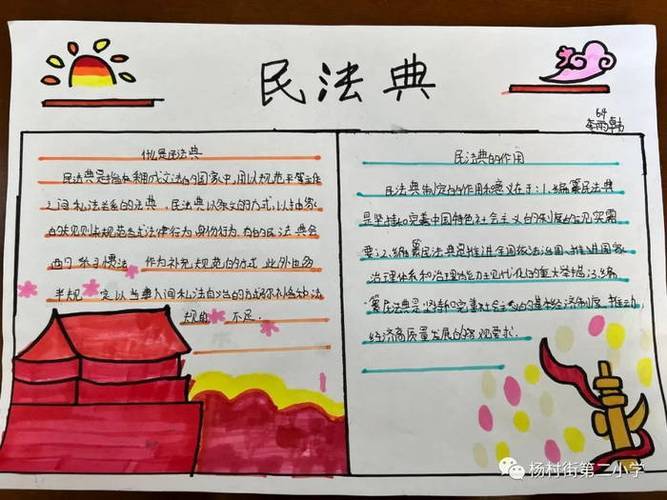 民法典
64
李雨韩
什么是民法典
民法典是指在采用成文法的国家中,用以规范平等主体
之间私法关系的法典,民法典以条文的方式,以抽象
的规则来规范各式法律行为,身份行为,有的民法典会
西可 惯法 作为补充规范的方式 此外由多
半规 定以当典人间私法自治的方式
规律 不足.
民法典的作用
民法典制定的作用和意义在于:1.编纂民法典
是坚持和完善中国特色社会主义的制度的现实需
要:2.编纂民法典是推进全国依法治国、推进国家
治理体系和治理能力现代化的重大举措;3.编
纂民法典是坚持和完善社会主义的基本经济制度、推动
经济高质量发展的客观要求.
杨村街第二小学